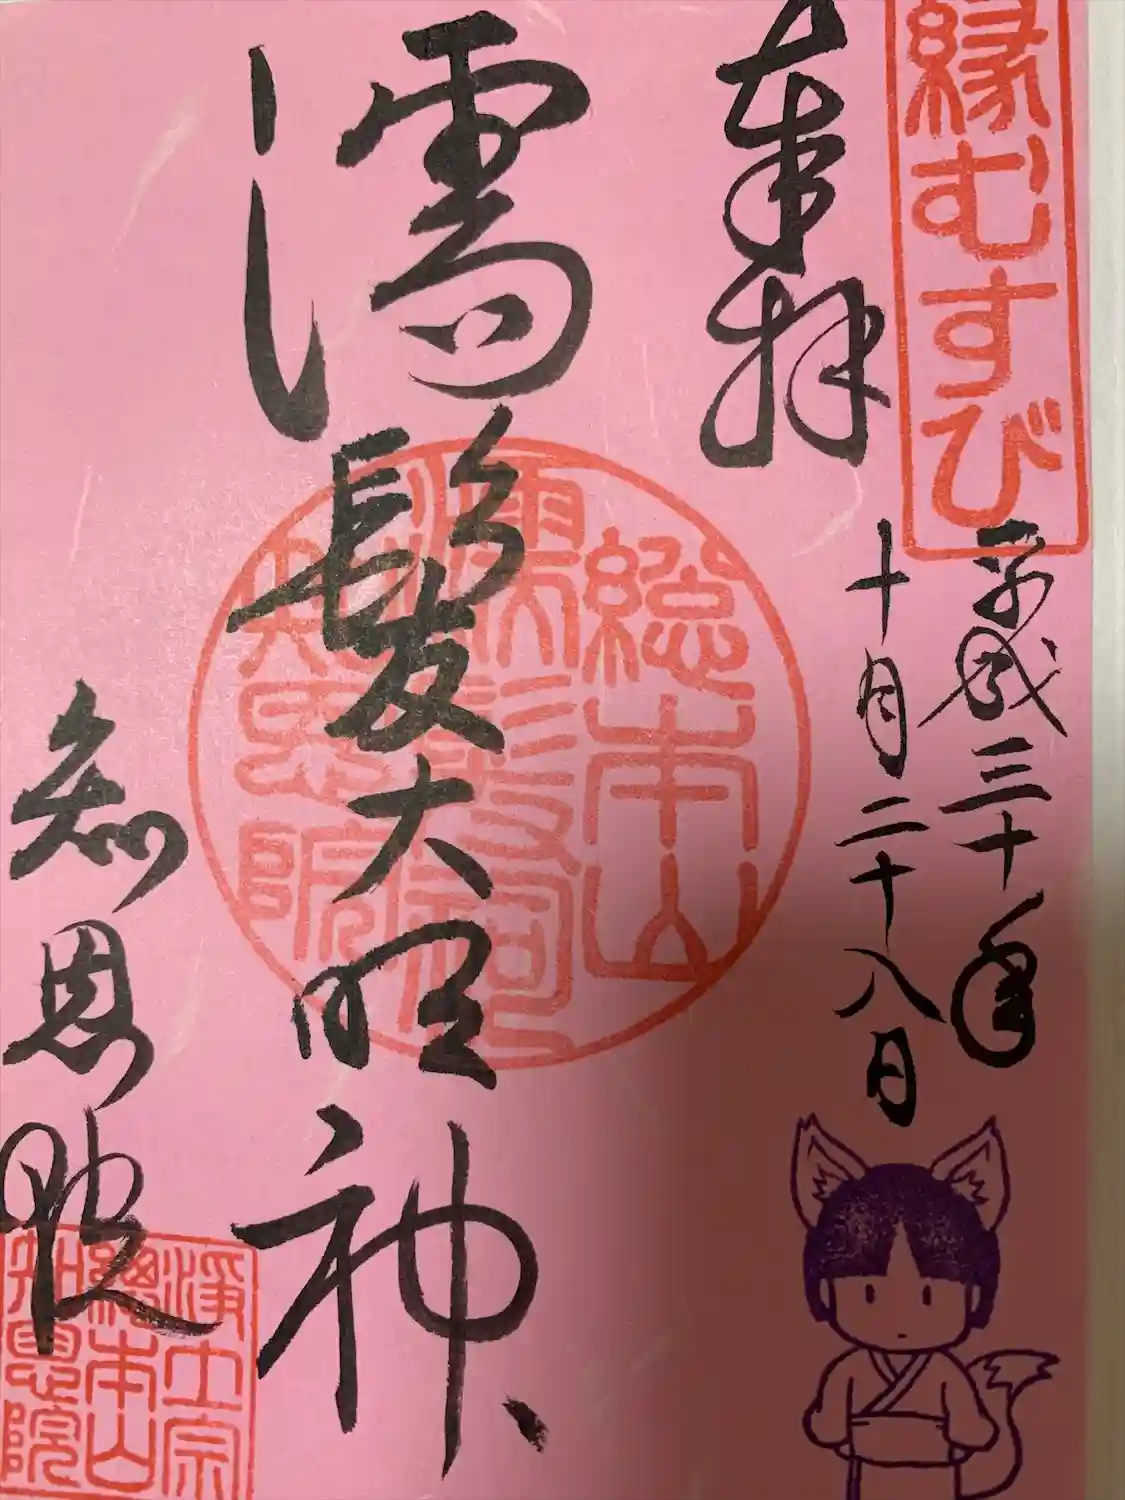 縁むすび
奉拝
平成三十年
十月二十八日
濡髪大明神
知恩院
総本山
濡髪祠
知恩院
浄土宗
総本山
知恩院